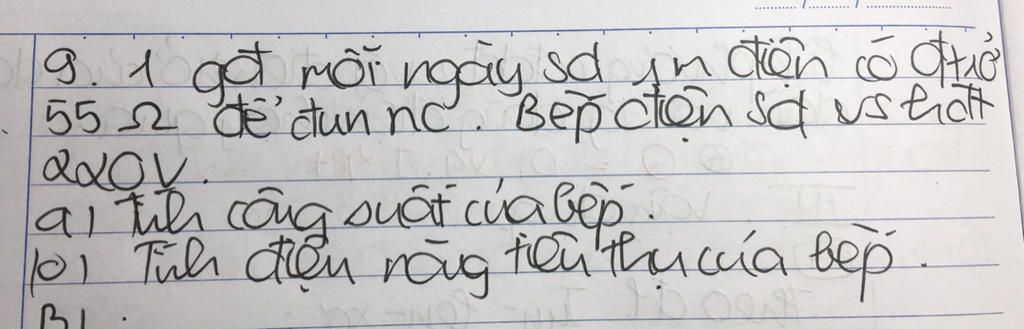 9. 1 gđ mỗi ngày sd điện có đtrở
55 Ω để đun nc. Bếp điện sd vs hđt
220V.
a) Tính công suất của bếp.
b) Tính điện năng tiêu thụ của bếp.